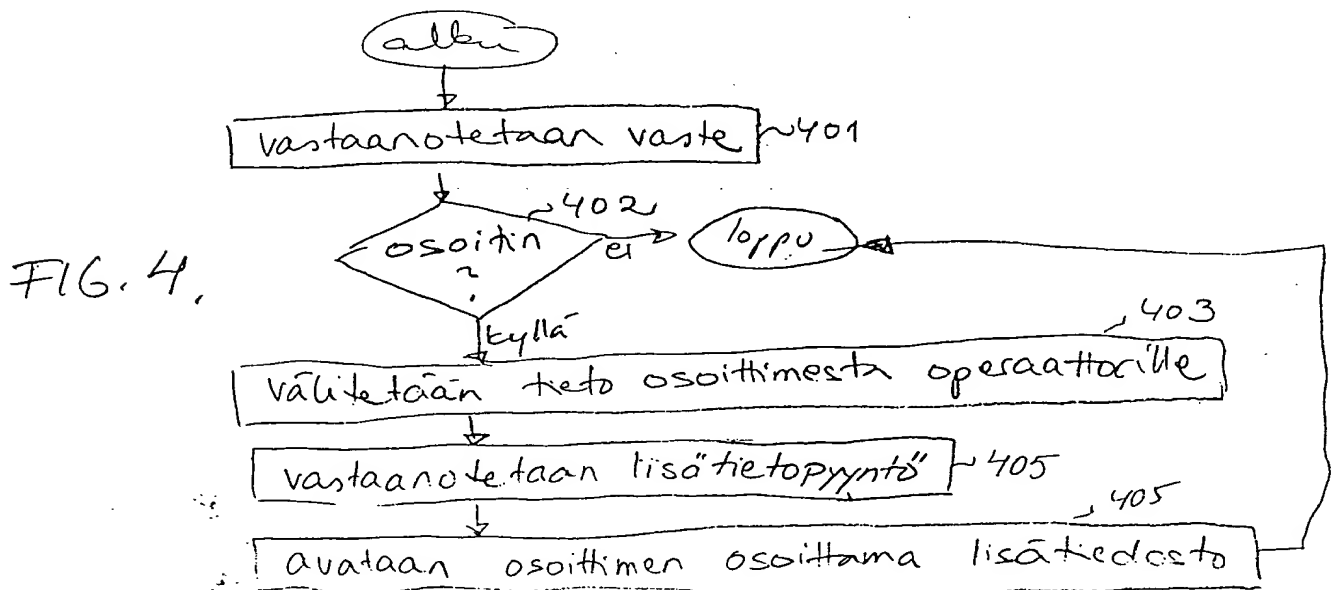 alku
vastaanotetaan vaste 401
402
osoitin
?
ei
loppu
FIG. 4.
kyllä
403
välitetään tieto osoittimesta operaattorille
vastaanotetaan lisätietopyyntö 405
405
avataan osoittimen osoittama lisätiedosto